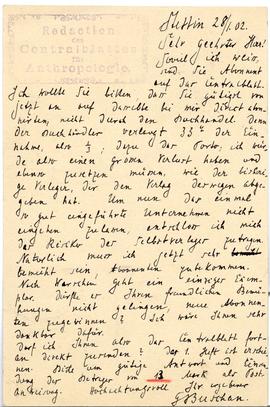 Redaction
des
Centralblattes
für
Anthropologie.
Stettin 28/1.02.
Sehr geehrter Herr!
Soviel ich weiss,
sind Sie Abonnent
auf das Centralblatt.
Ich wollte Sie bitten dass Sie gütigst von
jetzt an auf dasselbe bei mir direct abon-
nirten, nicht durch den Buchhandel. Denn
der Buchhändler verlangt 33% der Ein-
nahme, also 1/3; dazu das Porto, ich wür-
de also einen grossen Verlust haben und
ebenso zusetzen müssen, wie der bisheri-
ge Verleger, der den Verlag deswegen abge-
geben hat. Um nun das einmal
so gut eingeführte Unternehmen nicht
eingehen zu lassen, entschloss ich mich
das Risiko der Selbstverleger zu tragen.
Natürlich muss ich jetzt sehr
bemüht sein, Abonnenten zu bekommen.
Nach Warschau geht ein einziges Exem-
plar. Dürfte es Ihren freundlichen Bemü-
hungen nicht gelingen, neue Abonnen-
ten zu gewinnen? Ich wäre Ihnen sehr
dankbar dafür.
Darf ich Ihnen also das Centralblatt fort-
an direkt zusenden? das 1. Heft ist erschie-
nen. Bitte um gütige Antwort und Einsen-
dung des Betrages von 13 Mark als Post-
anweisung. Hochachtungsvoll Ihr ergebener
G. Buschan.